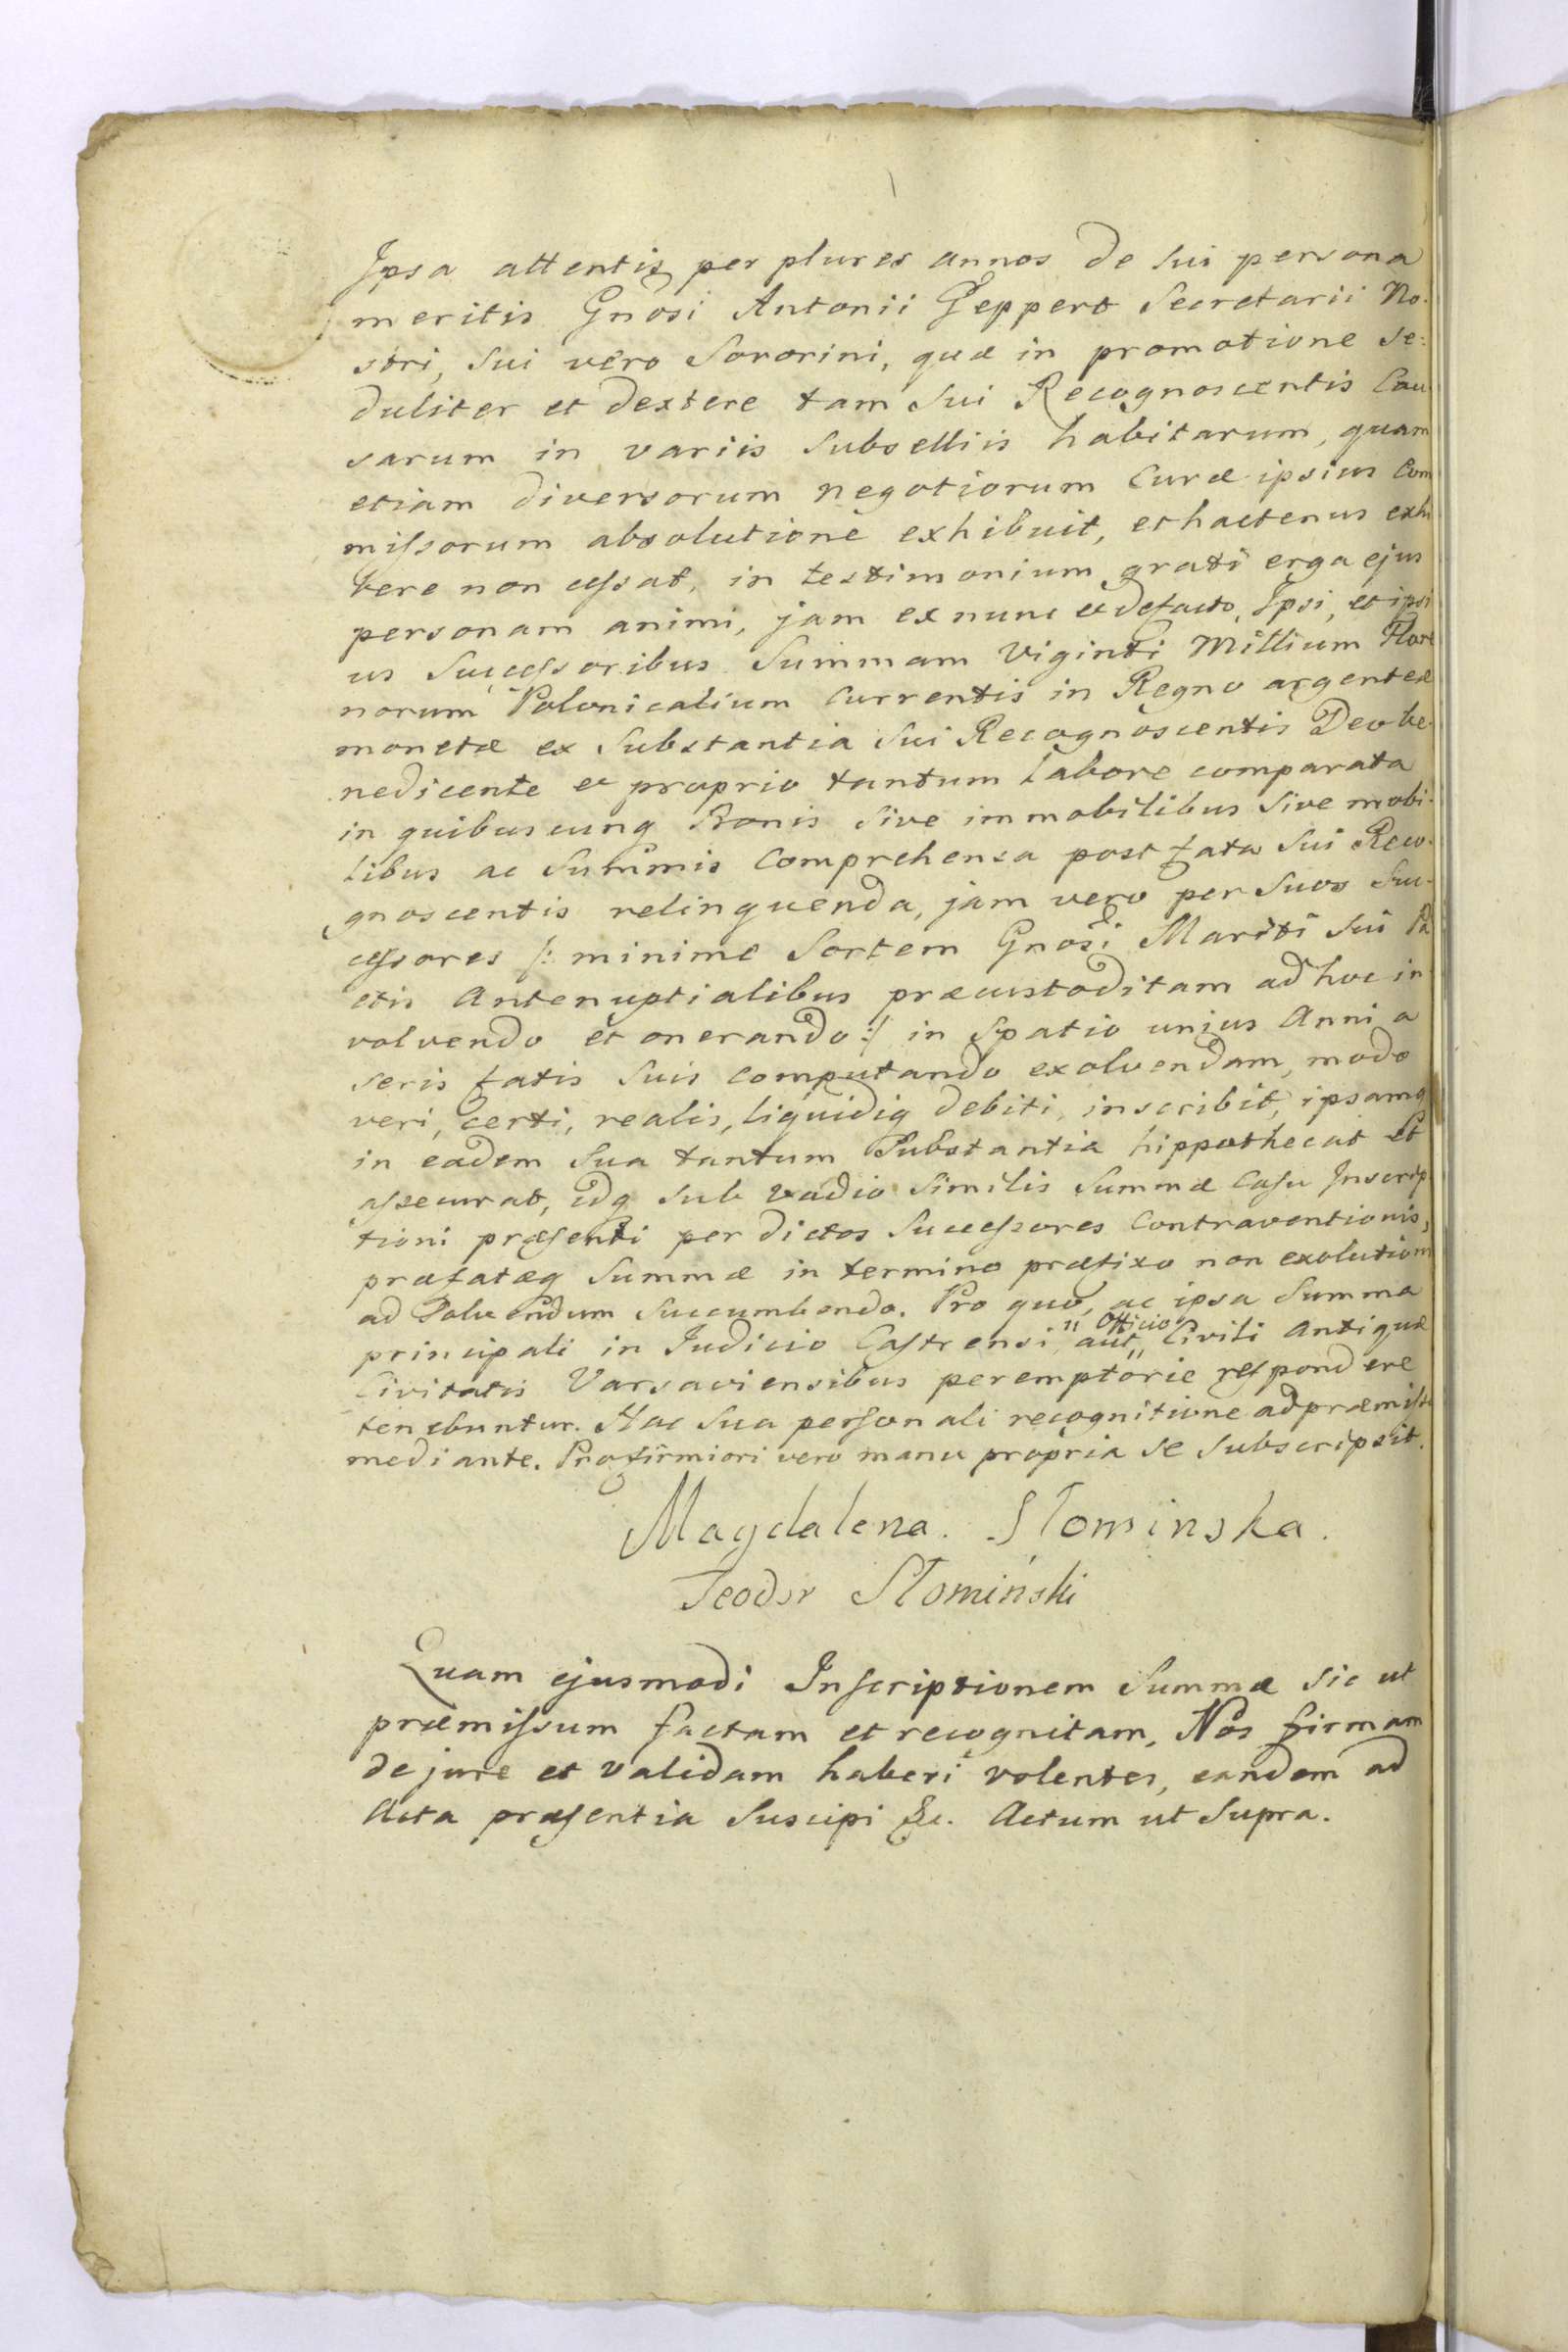 Ipsa attentis per plures annos de sui persona
meritis Gnosi Antonii Geppert Secretarii No-
stri, sui vero Sororini, quæ in promotione se-
duliter et dextere tam sui Recognoscentis Cau
sarum in variis Subselliis habitarum, quam
etiam diversorum negotiorum curæ ipsius Com
missorum absolutione exhibuit, et hactenus exhi
bere non cessat, in testimonium grati erga ejus
personam animi, jam ex nunc et de facto, Ipsi, et ipsi
us Successoribus Summam Viginti Millium Flore
norum Polonicalium Currentis in Regno argenteæ
monetæ ex Substantia sui Recognoscentis Deo be-
nedicente et proprio tantum labore comparata
in quibuscunq Bonis sive immobilibus sive mobi-
libus ac Summis Comprehensa post fata sui Reco-
gnoscentis relinquenda, jam vero per Suos Suc-
cessores /: minime Sortem Gnosi Mariti sui Pa
ctis Antenuptialibus præcustoditam ad hoc in
volvendo et onerando :/ in Spatio unius Anni a
seris fatis suis computando exolvendam, modo
veri, certi, realis, liquidiq debiti, inscribit, ipsamq
in eadem Sua tantum Substantia hippothecat et
assecurat, idq sub vadio Similis Summæ Casu Inscrip
tioni præsenti per dictos Successores Contraventionis,
præfatæq Summæ in termino præfixo non exolutionis
ad Solvendum Succumbendo. Pro quo, ac ipsa Summa
principali in Judicio Castrensi aut " Officio " Civili Antiquæ
Civitatis Varsaviensibus peremptorie respondere
tenebuntur. Hac sua personali recognitione ad præmissa
mediante. Pro firmiori vero manu propria se subscripsit.
Magdalena. Słominska.
Teodor Słomiński
Quam ejusmodi Inscriptionem Summæ sic ut
præmissum factam et recognitam, Nos firmam
de jure et validam haberi volentes, eandem ad
Acta præsentia Suscipi &c. Actum ut Supra.